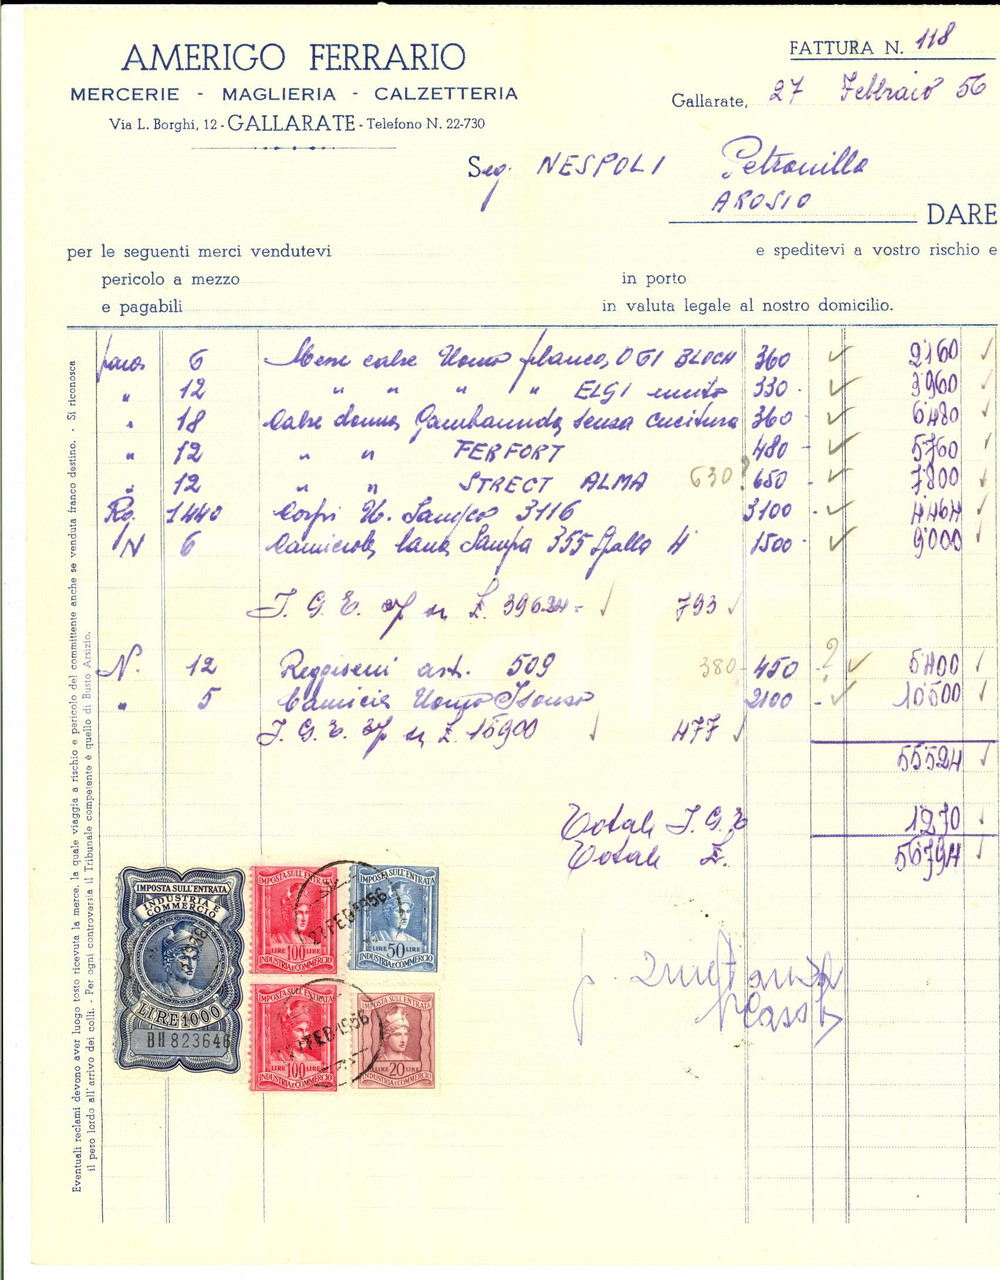 AMERIGO FERRARIO
MERCERIE - MAGLIERIA - CALZETTERIA
Via L. Borghi, 12 - GALLARATE - Telefono N. 22-730
FATTURA N. 118
Gallarate, 27 Febbraio 56
Seg. NESPOLI Petronilla
AROSIO
DARE
per le seguenti merci vendutevi e speditevi a vostro rischio e
pericolo a mezzo in porto
e pagabili in valuta legale al nostro domicilio.
paia 6 Mezze calze Uomo 061 BLOCH 360 2160
" 12 " " " " ELGI unito 330 3960
" 18 Calze donna Gambanuda senza cucitura 360 6480
" 12 " " FERFORT 480 5760
" 12 " " STRECT ALMA 630? 650 7800
Kg. 1440 Corpi U. 3116 3100 4464
N 6 lana 355 Spalla 1500 9000
I.G.E. su £. 39624 793
N. 12 Reggiseni art. 509 380 450 ? 5400
" 5 Camicia Uomo 2100 10500
I.G.E. su £. 15900 477
55524
Totale I.G.E 1270
Totale £. 56794
IMPOSTA SULL'ENTRATA
INDUSTRIA E COMMERCIO
LIRE 1000
BH 823646
IMPOSTA SULL'ENTRATA
LIRE 100 LIRE
INDUSTRIA E COMMERCIO
27 FEB 1956
IMPOSTA SULL'ENTRATA
LIRE 50 LIRE
INDUSTRIA E COMMERCIO
IMPOSTA SULL'ENTRATA
LIRE 100 LIRE
INDUSTRIA E COMMERCIO
27 FEB 1956
IMPOSTA SULL'ENTRATA
LIRE 20 LIRE
INDUSTRIA E COMMERCIO
p. quietanza
Eventuali reclami devono aver luogo tosto ricevuta la merce, la quale viaggia a rischio e pericolo del committente anche se venduta franco destino. - Si riconosce
il peso lordo all'arrivo dei colli. - Per ogni controversia il Tribunale competente è quello di Busto Arsizio.